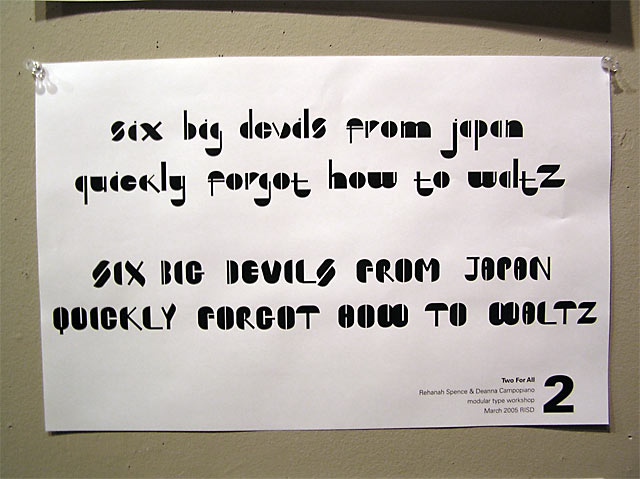 six big devils from japan
quickly forgot how to waltz
SIX BIG DEVILS FROM JAPAN
QUICKLY FORGOT HOW TO WALTZ
Two For All
Rehanah Spence & Deanna Campopiano
modular type workshop
March 2005 RISD
2